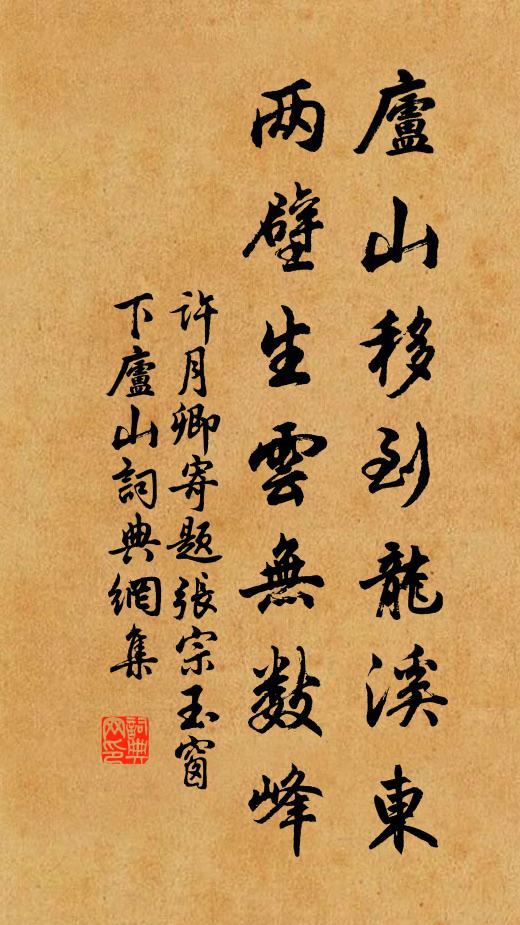 廬山移到龍溪東
两壁生雲無数峰
许月卿寄题張宗玉窗
下廬山詞典網集
詞典
网印